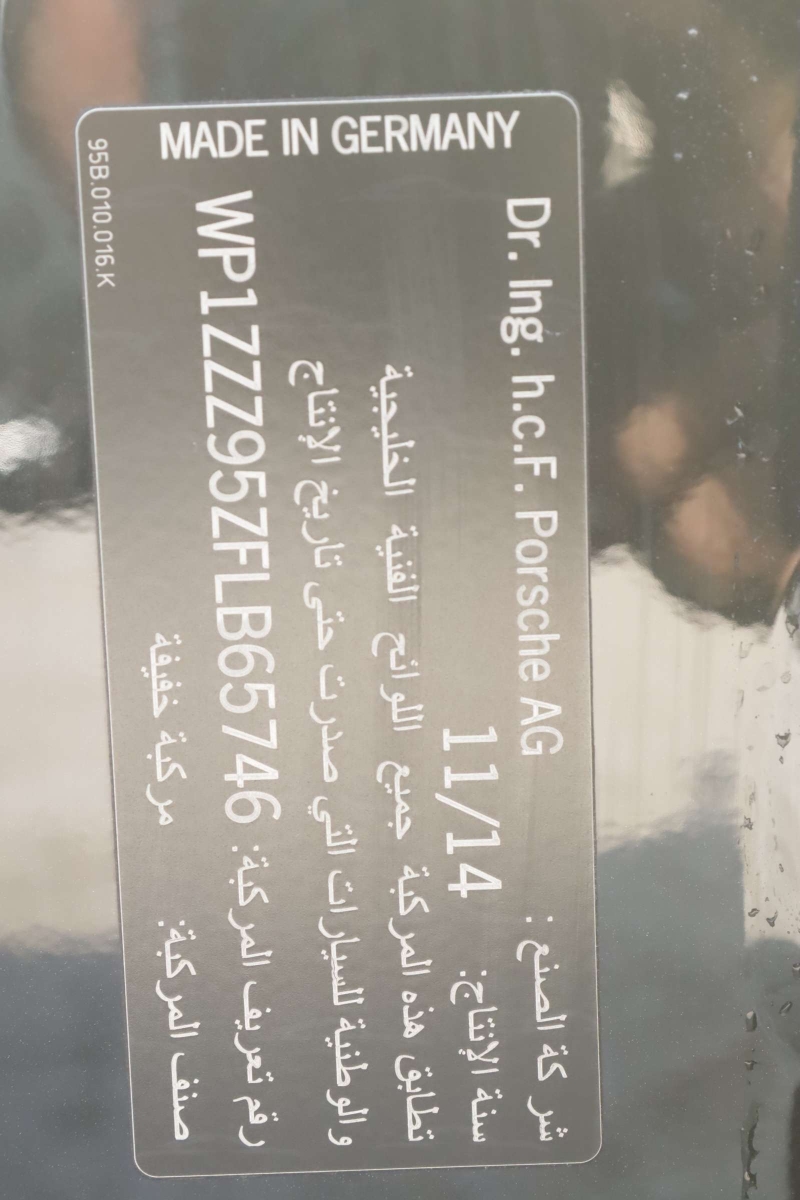 MADE IN GERMANY
شركة الصنع : Dr. Ing. h.c.F. Porsche AG
سنة الإنتاج: 11/14
تطابق هذه المركبة جميع اللوائح الفنية الخليجية
والوطنية للسيارات التي صدرت حتى تاريخ الإنتاج
رقم تعريف المركبة: WP1ZZZ95ZFLB65746
صنف المركبة: مركبة خفيفة
95B.010.016.K